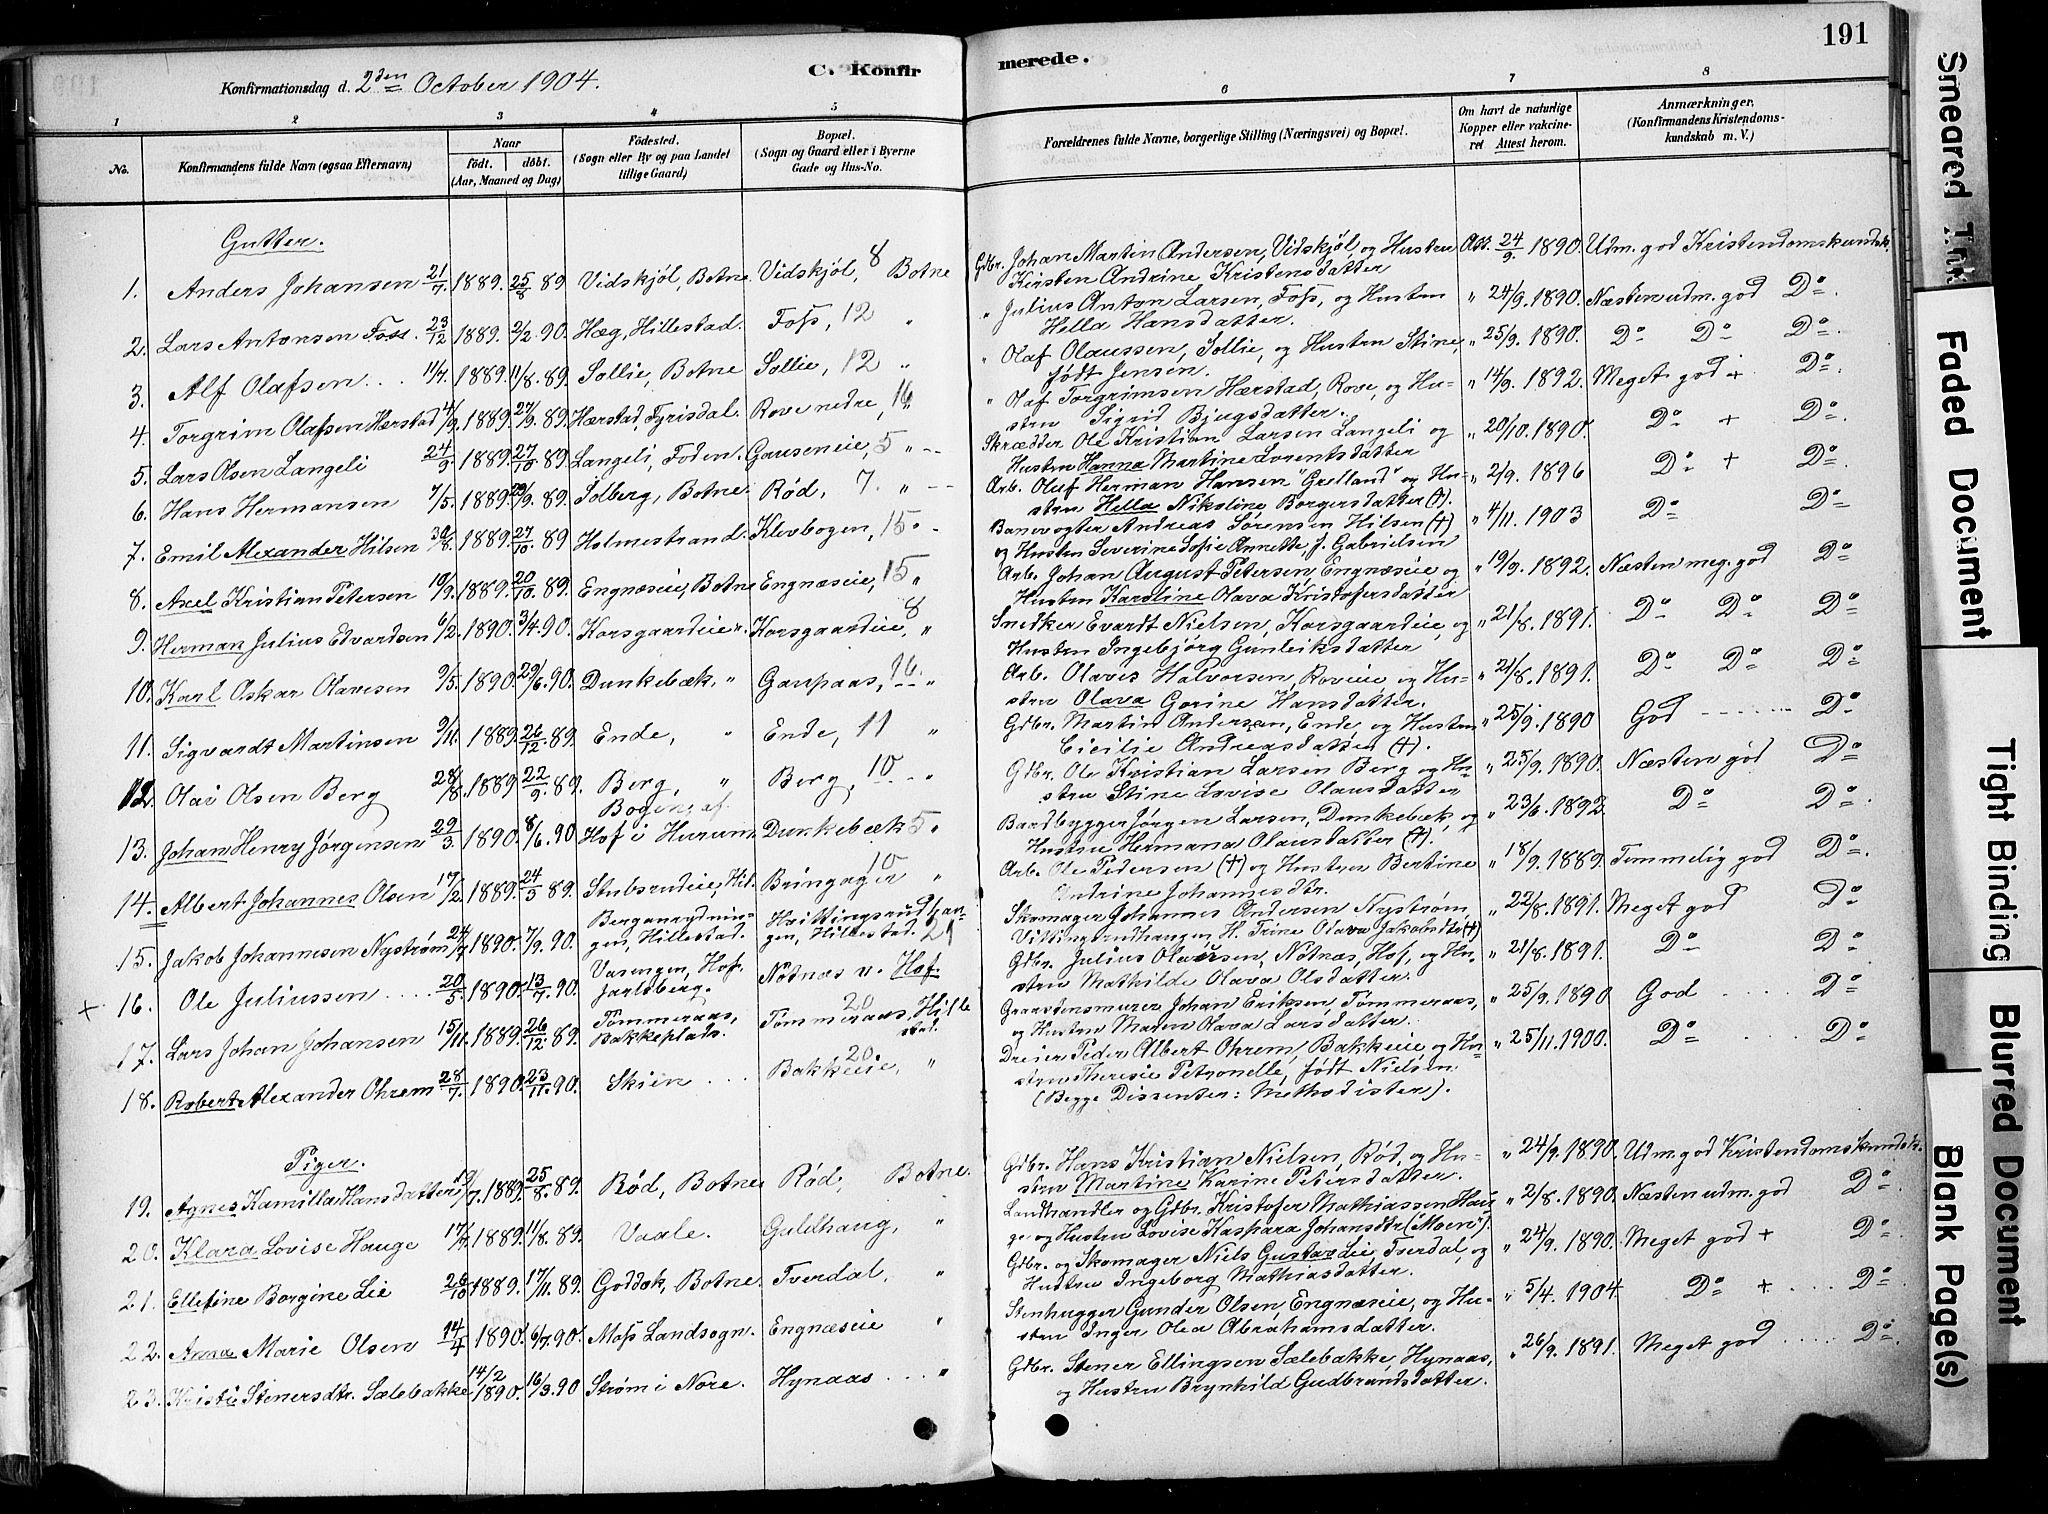 191
C. Konfirmerede.
Konfirmationsdag d. 2den October 1904.
1 2 3 4 5 6 7 8
No.
Konfirmandens fulde Navn (ogsaa Efternavn)
Naar
født. døbt.
(Aar, Maaned og Dag)
Fødested.
(Sogn eller By og paa Landet tillige Gaard)
Bopæl.
(Sogn og Gaard eller i Byerne Gade og Hus-No.
Forældrenes fulde Navne, borgerlige Stilling (Næringsvei) og Bopæl.
Om havt de naturlige Kopper eller vakcineret Attest herom.
Anmærkninger.
(Konfirmandens Kristendomskundskab m. V.)
Gutter.
1. Anders Johansen 21/7. 1889. 25/8 89 Vidskjøl, Botne Vidskjøl, 8 Botne Gdbr. Johan Martin Andersen, Vidskjøl, og Hustru Att. 24/9. 1890. Udm. god Kristendomskundsk.
Kirsten Andrine Kristensdatter
2. Lars Antonsen Foss. 23/12 1889. 2/2. 90. Hæg, Hillestad. Foss, 12 " " Julius Anton Larsen, Foss, og Hustru " 24/9. 1890. Næsten udm. god Do.
Hella Hansdatter.
3. Alf Olafsen 11/7. 1889. 11/8. 89. Sollie, Botne Sollie, 12 " " Olaf Olaussen, Sollie, og Hustru Stine, " 25/9. 1890. Do Do Do
født Jensen.
4. Torgrim Olafsen Hærstad 4/9 1889. 27/9. 89. Hærstad, Fyrisdal. Rove nedre, 16 " " Olaf Torgrimsen Hærstad, Rove, og Hu- " 14/9. 1892. Meget god + Do.
stru Sigrid Bjugsdatter.
5. Lars Olsen Langeli 24/9 1889. 27/10 89. Langeli, Foden. Gauseneie, 5 " Skrædder Ole Kristian Larsen Langeli og " 20/10. 1890. Do + Do
Hustru Hanna Martine Lorentsdatter
6. Hans Hermansen 7/5. 1889. 29/9. 89. Solberg, Botne. Rød, 7. " Arb. Oluf Herman Hansen "Grelland" og Hu- " 2/9. 1896 Do + Do
stru Hella Nikoline Borgersdatter (+).
7. Emil Alexander Hilsen 30/8. 1889. 27/10. 89 Holmestrand. Klevbogen, 15 Banevogter Andreas Sørensen Hilsen (+) " 4/11. 1903 Do Do
og Hustru Severine Sofie Annette, f. Gabrielsen
8. Axel Kristian Petersen 10/9. 1889. 20/10. 89. Engnæseie, Botne Engnæseie, 15 " Arb. Johan August Petersen, Engnæseie og " 19/9. 1892. Næsten meg. god Do
Hustru Karoline Olava Kristofersdatter
9. Herman Julius Edvardsen 6/2. 1890. 3/4. 90. Korsgaardeie ". Korsgaardeie, 8 " Snedker Evardt Nielsen, Korsgaardeie, og " 21/8. 1891. Do Do Do
Hustru Ingebjørg Gunleiksdatter
10. Karl Oskar Olavesen 9/5. 1890. 29/6. 90. Dunkebæk, " Gaupaas, 16. " Arb. Olaves Halvorsen, Roveie og Hu- " 21/8. 1891. Do Do Do
stru Olava Gorine Hansdatter.
11. Sigvardt Martinsen 9/11. 1889. 26/12. 89. Ende, " Ende, 11 " Gdbr. Martin Andersen, Ende, og Hustru " 25/9. 1890 God Do
Cicilie Andreasdatter (+).
12. Olav Olsen Berg 28/8. 1889. 22/9. 89. Berg, " Berg, 10 " Gdbr. Ole Kristian Larsen Berg og Hu- " 25/9. 1890. Næsten god Do
stru Stine Lovise Olausdatter
13. Johan Henry Jørgensen 29/3. 1890. 8/6. 90 Bogen af Hof i Hurum Dunkebæk 5 " Baadbygger Jørgen Larsen, Dunkebæk, og " 23/6. 1892. Do Do.
Hustru Hermana Olausdatter (+).
14. Albert Johannes Olsen 17/2. 1889. 24/3 89. Stubsrudeie, Hil. Bringager 10 " Arb. Ole Pedersen (+) og Hustru Bertine " 18/9. 1889. Temmelig god Do.
Andrine Johannesdtr.
15. Jakob Johannesen Nystrøm 24/7 1890. 7/9. 90. gen, Hillestad. gen, Hillestad. 21 Skomager Johannes Andersen Nystrøm, " 22/8. 1891. Meget god Do
H. Trine Olava Jakobsdtr (+)
+ 16. Ole Juliussen 20/5. 1890. 13/7. 90. Vasengen, Hof, Jarlsberg. Notnæs v. Hof. Gdbr. Julius Olaussen, Notnæs, Hof, og Hu- " 21/8. 1891. Do Do
stru Mathilde Olava Olsdatter.
17. Lars Johan Johansen 15/11. 1889. 26/12. 89. Tømmeraas, Bakkeplads. Tømmeraas, 20 Hillestad. Graastensmurer Johan Eriksen, Tømmeraas, " 25/9. 1890 God Do
og Hustru Maren Olava Larsdatter.
18. Robert Alexander Ohrem 28/7. 1890. 23/11. 90. Skien Bakkeeie, 20 " Dreier Peder Albert Ohrem, Bakkeie og Hu- " 25/11. 1900. Do Do
stru Theresie Petronelle, født Nielsen.
(Begge Dissenter: Methodister).
Piger.
19. Agnes Kamilla Hansdatter 19/7. 1889. 25/8. 89. Rød, Botne Rød, Botne. Gdbr. Hans Kristian Nielsen, Rød, og Hu- " 24/9. 1890. Udm. god Kristendomskundsk.
stru Martine Karine Petersdatter.
20. Klara Lovise Hauge 17/7. 1889. 11/8. 89. Vaale. Guldhaug, " Landhandler og Gdbr. Kristofer Mathiassen Hau- " 2/8. 1890. Næsten udm. god Do
ge og Hustru Lovise Kaspara Johansdtr. (Moen).
21. Ellefine Borgine Lie 26/10 1889. 17/11. 89. Goddok, Botne. Tverdal, " Gdbr. og Skomager Niels Gustav Lie, Tverdal, og " 24/9. 1890. Meget god + Do
Hustru Ingeborg Mathiasdatter.
22. Anna Marie Olsen 14/4 1890. 6/7. 90. Moss Landsogn. Engnæseie " Stenhugger Gunder Olsen, Engnæseie, og Hu- " 5/4. 1904 Do + Do
stru Inger Olea Abrahamsdatter.
23. Kristi Stenersdtr. Sælebakke 14/2 1890. 16/3. 90 Strøm i Nore. Hynaas " Gdbr. Stener Ellingsen Sælebakke, Hynaas, " 26/9. 1891. Meget god Do
og Hustru Brynhild Gudbrandsdatter.
Smeared Ink
Faded Document
Tight Binding
Blurred Document
Blank Page(s)